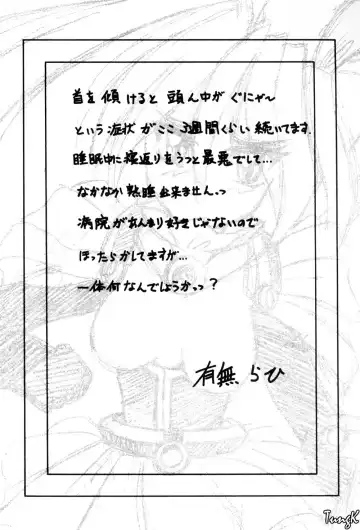 首を傾けると 頭ん中が ぐにゃ〜
という症状がここ3週間くらい続いてます.
睡眠中に寝返りをうつと最悪でして...
なかなか熟睡出来ませんっ
病院があんまり好きじゃないので
ほったらかしてますが...
一体何なんでしょうかっ?
有無らひ
TungK